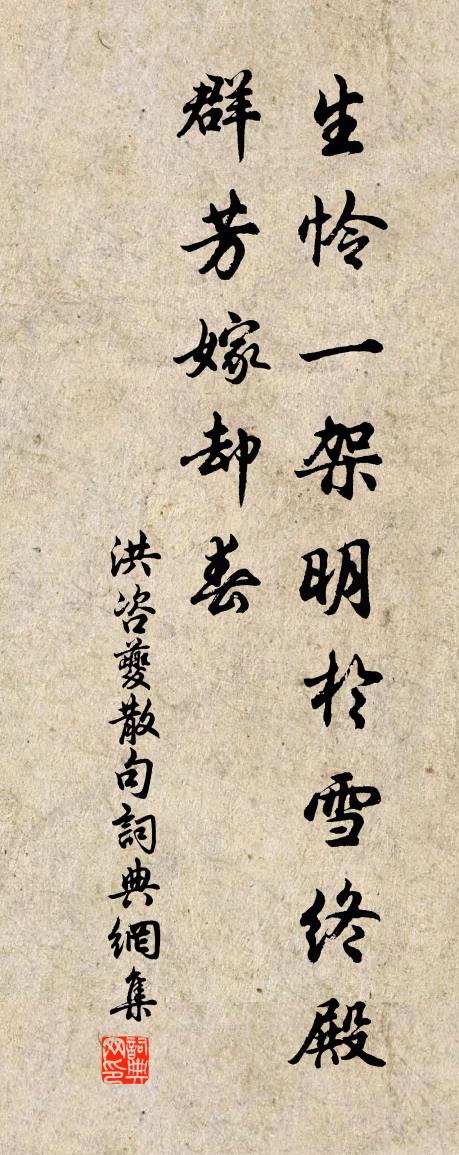 生怜一架明於雪終殿
群芳嫁却春
洪咨夔散句詞典網集
詞典网印